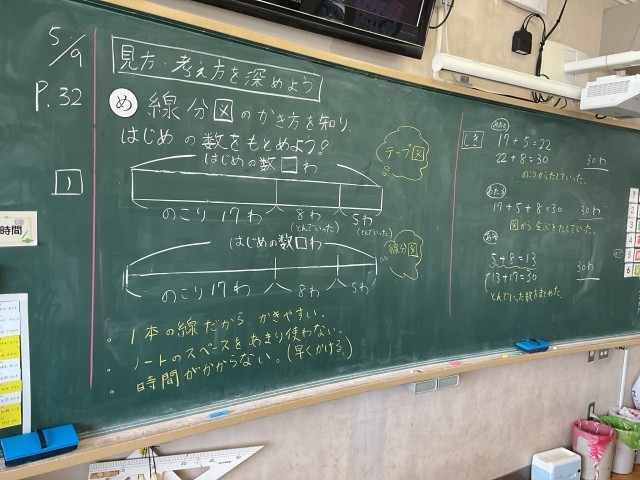 5/9
P.32
見方・考え方を深めよう
め 線分図のかき方を知り、
はじめの数をもとめよう?
1
はじめの数□わ
テープ図
のこり17わ 8わ 5わ
(とんでいった) (とんでいった)
はじめの数□わ
線分図
のこり17わ 8わ 5わ
・1本の線だから かきやすい。
・ノートのスペースをあまり使わない。
・時間がかからない。(早くかける)
しき
17+5=22
22+8=30 30わ
のこりからたしていった。
17+5+8=30 30わ
図から 全ぶをたしていった。
5+8=13
13+17=30 30わ
とんでいった数をまとめた。
時間